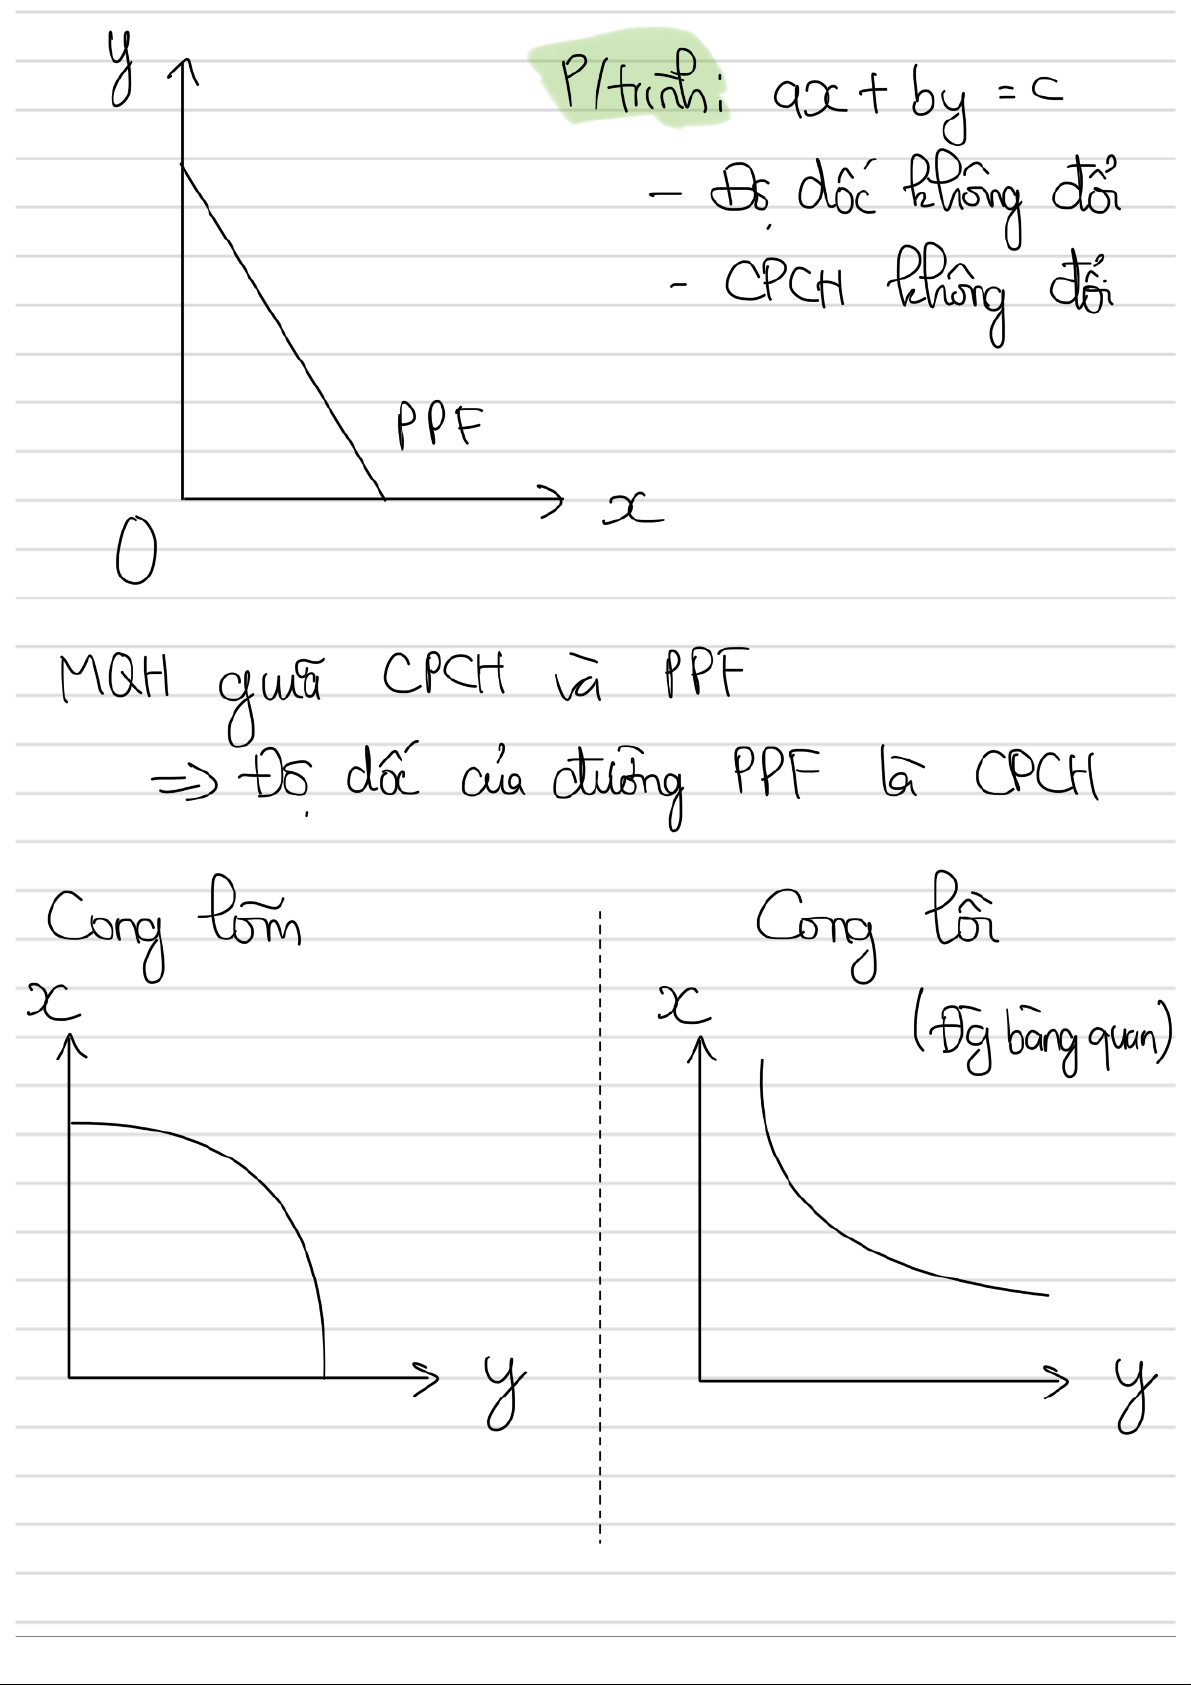 y
P/trình: ax + by = c
- Độ dốc không đổi
- CPCH không đổi
PPF
x
O
MQH giữa CPCH và PPF
=> Độ dốc của đường PPF là CPCH
Cong lõm
Cong lồi
x
x
(Đg bàng quan)
y
y